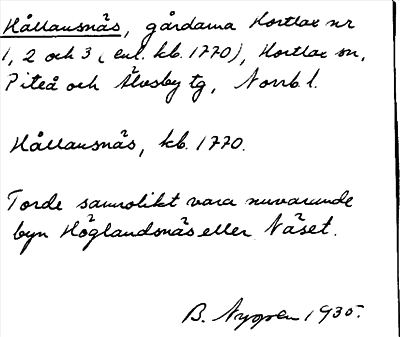 Hållansnäs, gårdarna Hortlax nr
1, 2 och 3 (enl. kb. 1770), Hortlax sn,
Piteå och Älvsby tg, Norrb l.
Hållansnäs, kb. 1770.
Torde sannolikt vara nuvarande
byn Höglandsnäs eller Näset.
B. Nygren 1935.